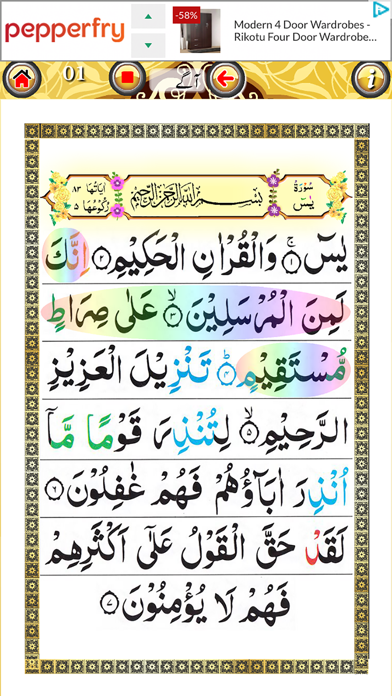 pepperfry
-58%
Modern 4 Door Wardrobes -
Rikotu Four Door Wardrobe...
01
i
سُوْرَةُ يٰسٓ
بِسْمِ اللّٰهِ الرَّحْمٰنِ الرَّحِيْمِ
اٰيَاتُهَا ٨٣
رُكُوْعُهَا ٥
يٰسٓ ۚ﴿١﴾ وَالْقُرْاٰنِ الْحَكِيْمِ ۙ﴿٢﴾ اِنَّكَ
لَمِنَ الْمُرْسَلِيْنَ ۙ﴿٣﴾ عَلٰى صِرَاطٍ
مُّسْتَقِيْمٍ ؕ﴿٤﴾ تَنْزِيْلَ الْعَزِيْزِ
الرَّحِيْمِ ۙ﴿٥﴾ لِتُنْذِرَ قَوْمًا مَّاۤ
اُنْذِرَ اٰبَآؤُهُمْ فَهُمْ غٰفِلُوْنَ ﴿٦﴾
لَقَدْ حَقَّ الْقَوْلُ عَلٰٓى اَكْثَرِهِمْ
فَهُمْ لَا يُؤْمِنُوْنَ ﴿٧﴾